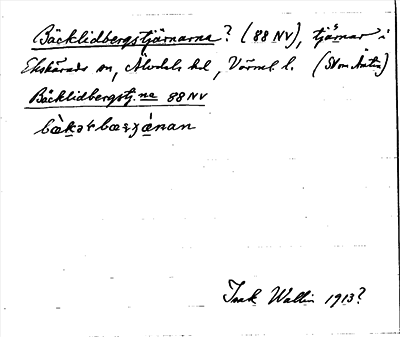 Bäcklidbergstjärnarna? (88 NV), tjärnar i
Ekshärads sn, Älvdals hd, Värml. l.
Bäcklidbergstj.na 88 NV
Isak Wallin 1913?